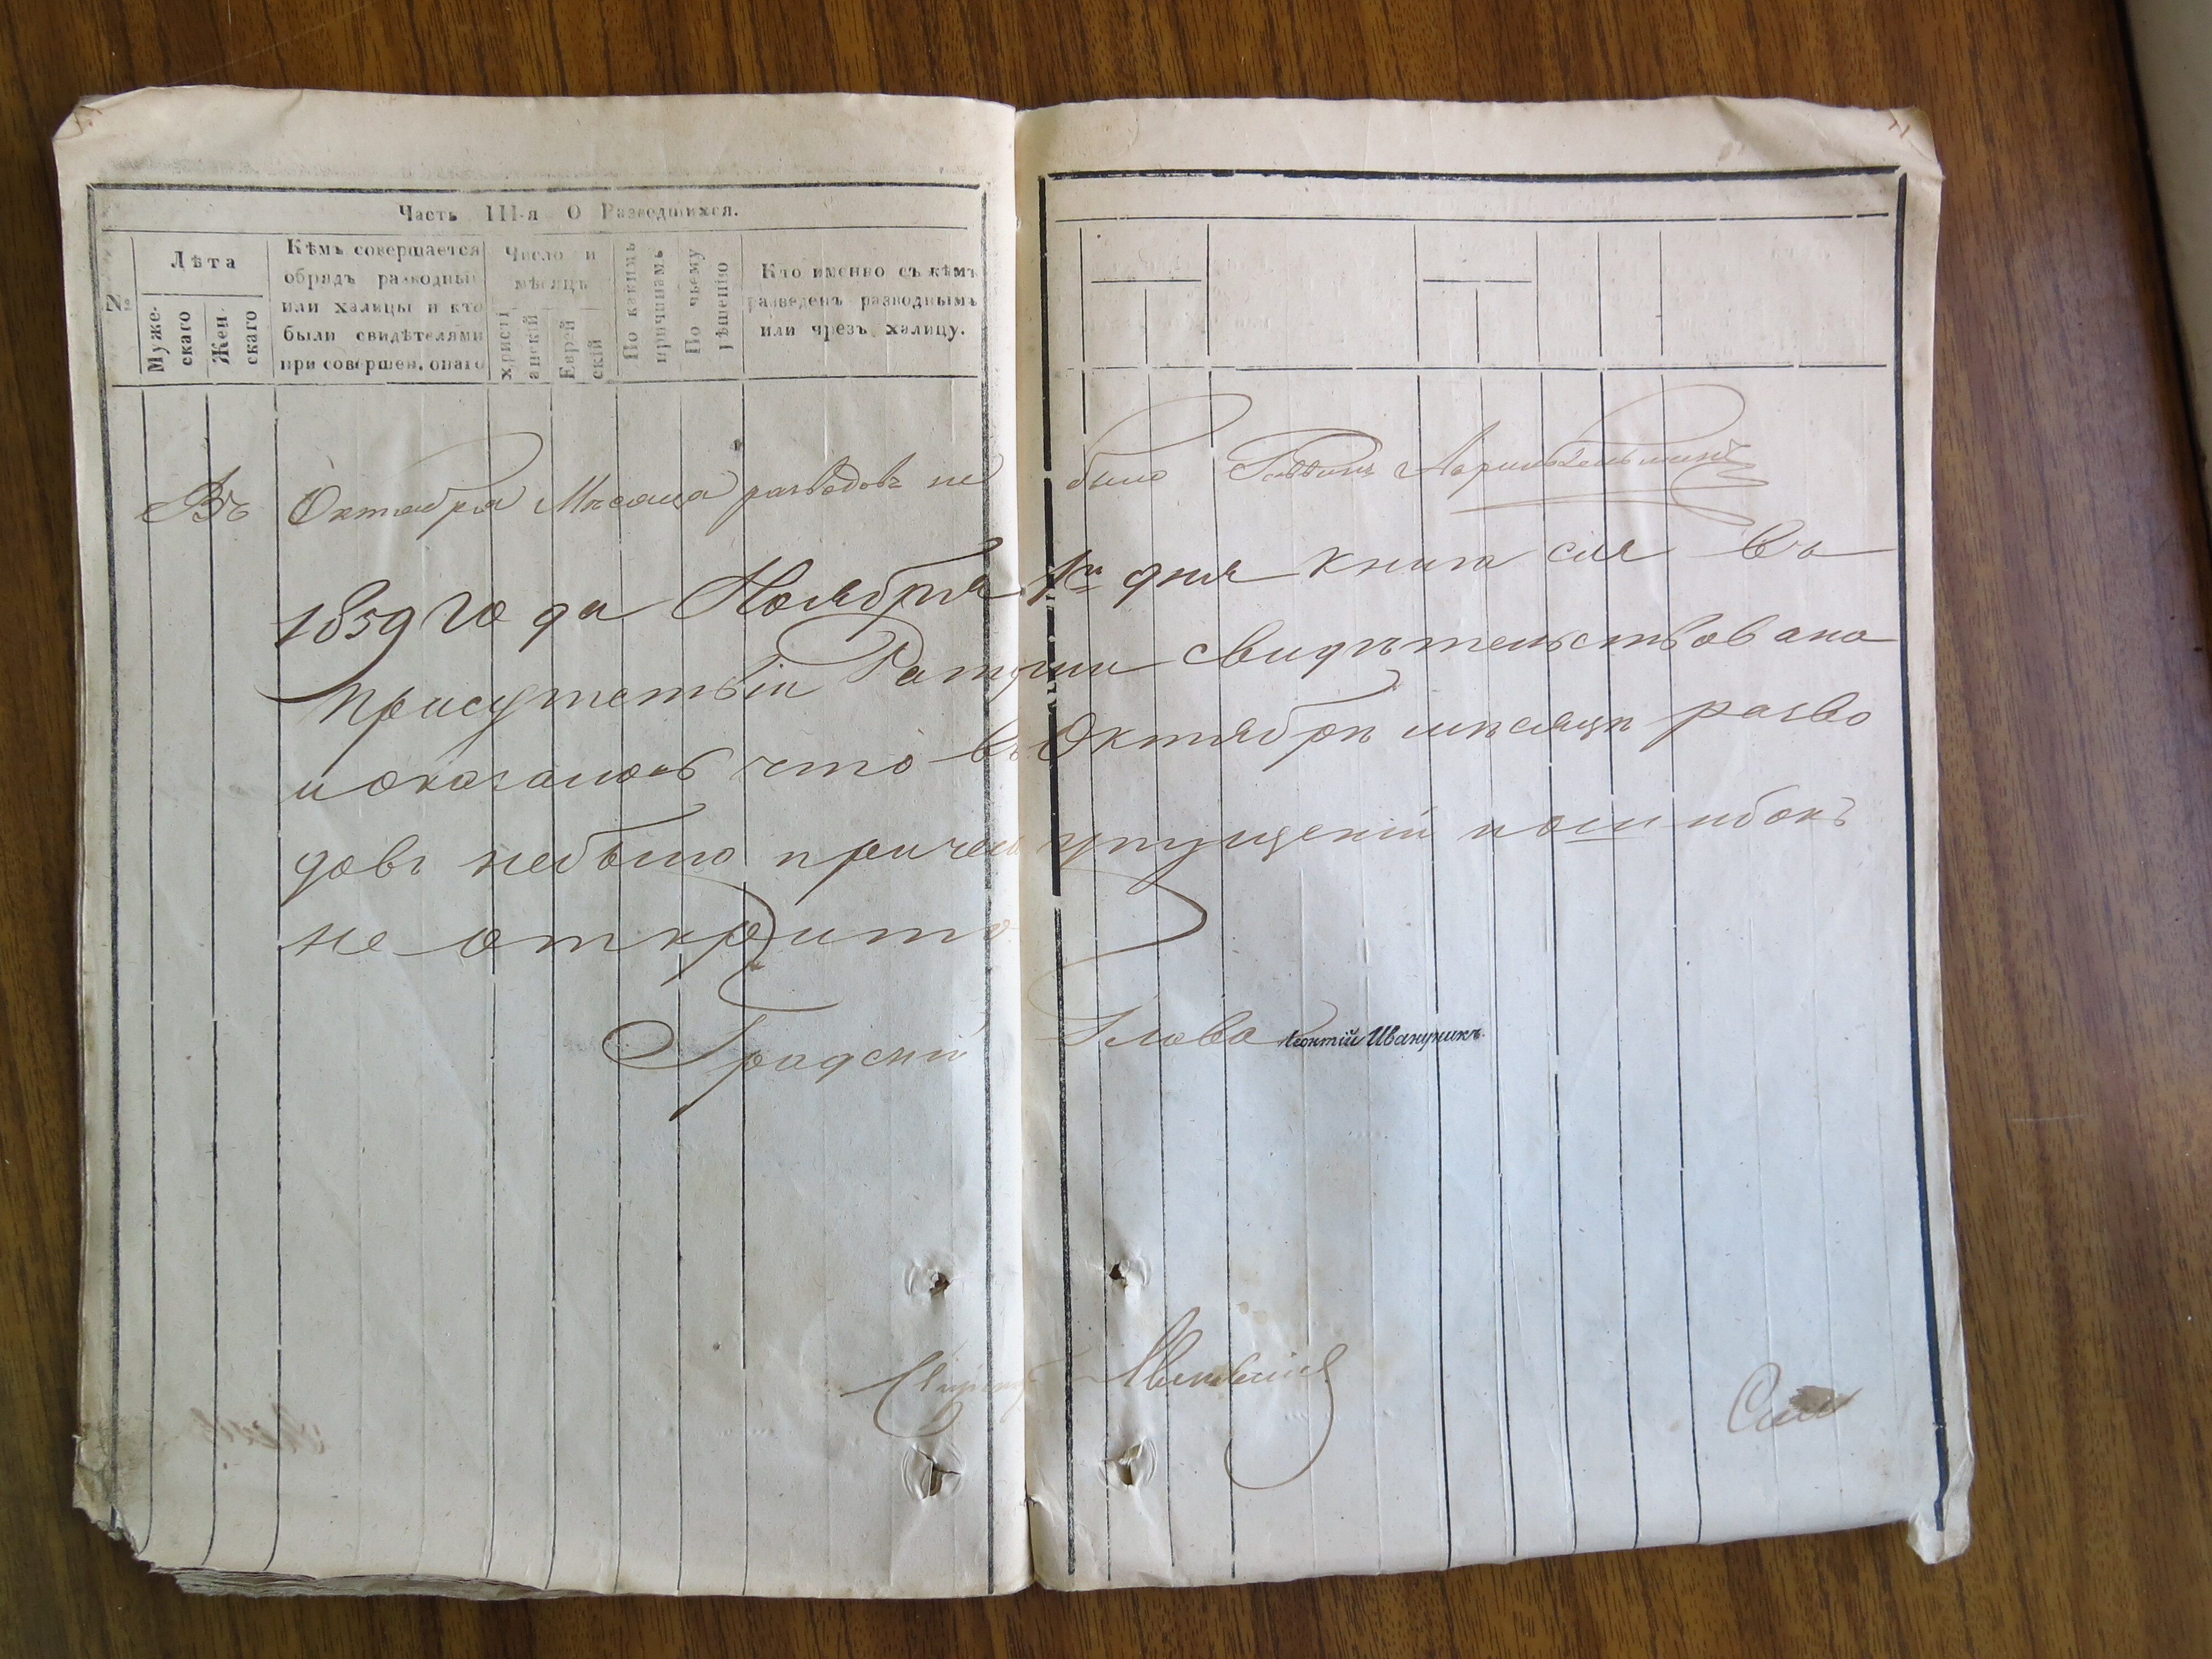 Часть III-я О Разводшихся.
№
Лѣта
Муже-
скаго
Жен-
скаго
Кѣмъ совершается
обрядъ разводный
или халицы и кто
были свидѣтелями
при совершен. онаго
Число и
мѣсяцъ
христі
анскій
Еврей
скій
По какимъ
причинамъ
По чьему
рѣшенію
Кто именно съ кѣмъ
разведенъ разводнымъ
или чрезъ халицу.
Въ Октября Мѣсяца разводовъ не было Раввинъ
1859 года Ноября 1го дня книга сія въ
присутствіи Ратуши свидѣтельствована
и оказалось что въ Октябрѣ мѣсяцѣ разво
довъ небыло причемъ упущеній иошибокъ
не открито
Градскій Глава Леонтій Иванушкъ.